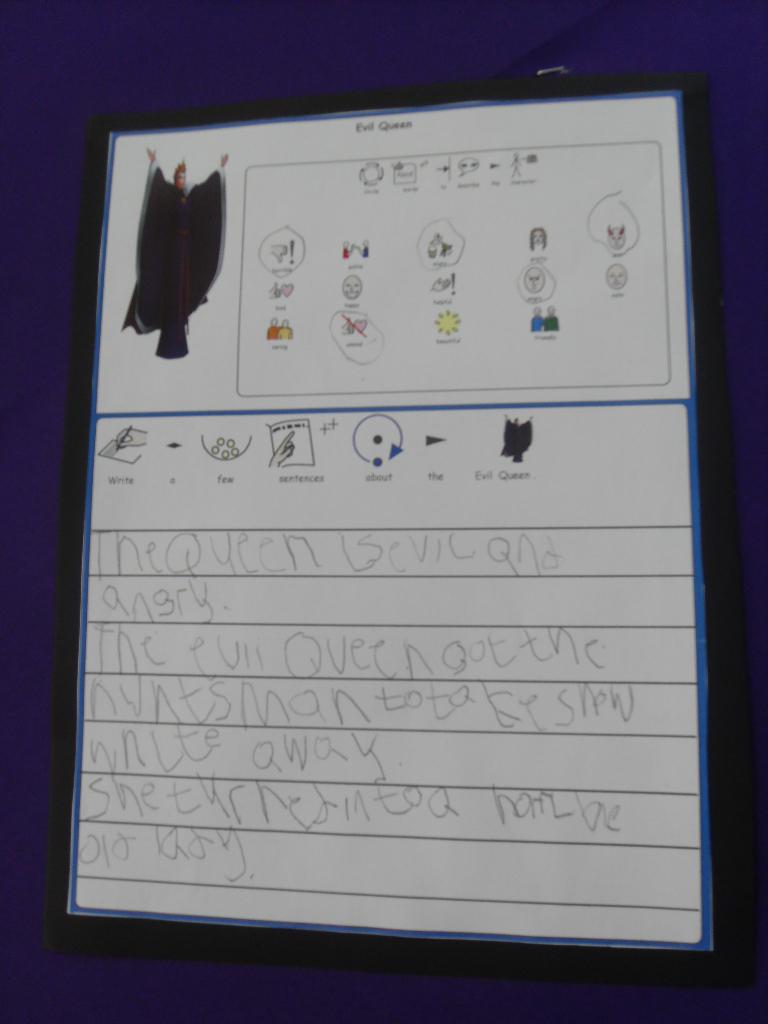 Evil Queen
circle words to describe the character.
horrible active angry angry evil
kind happy helpful angry calm
caring unkind beautiful friendly
Write a few sentences about the Evil Queen.
The Queen is evil and
angry.
The evil Queen got the
huntsman to take snow
white away.
She turned into a horrible
old lady.